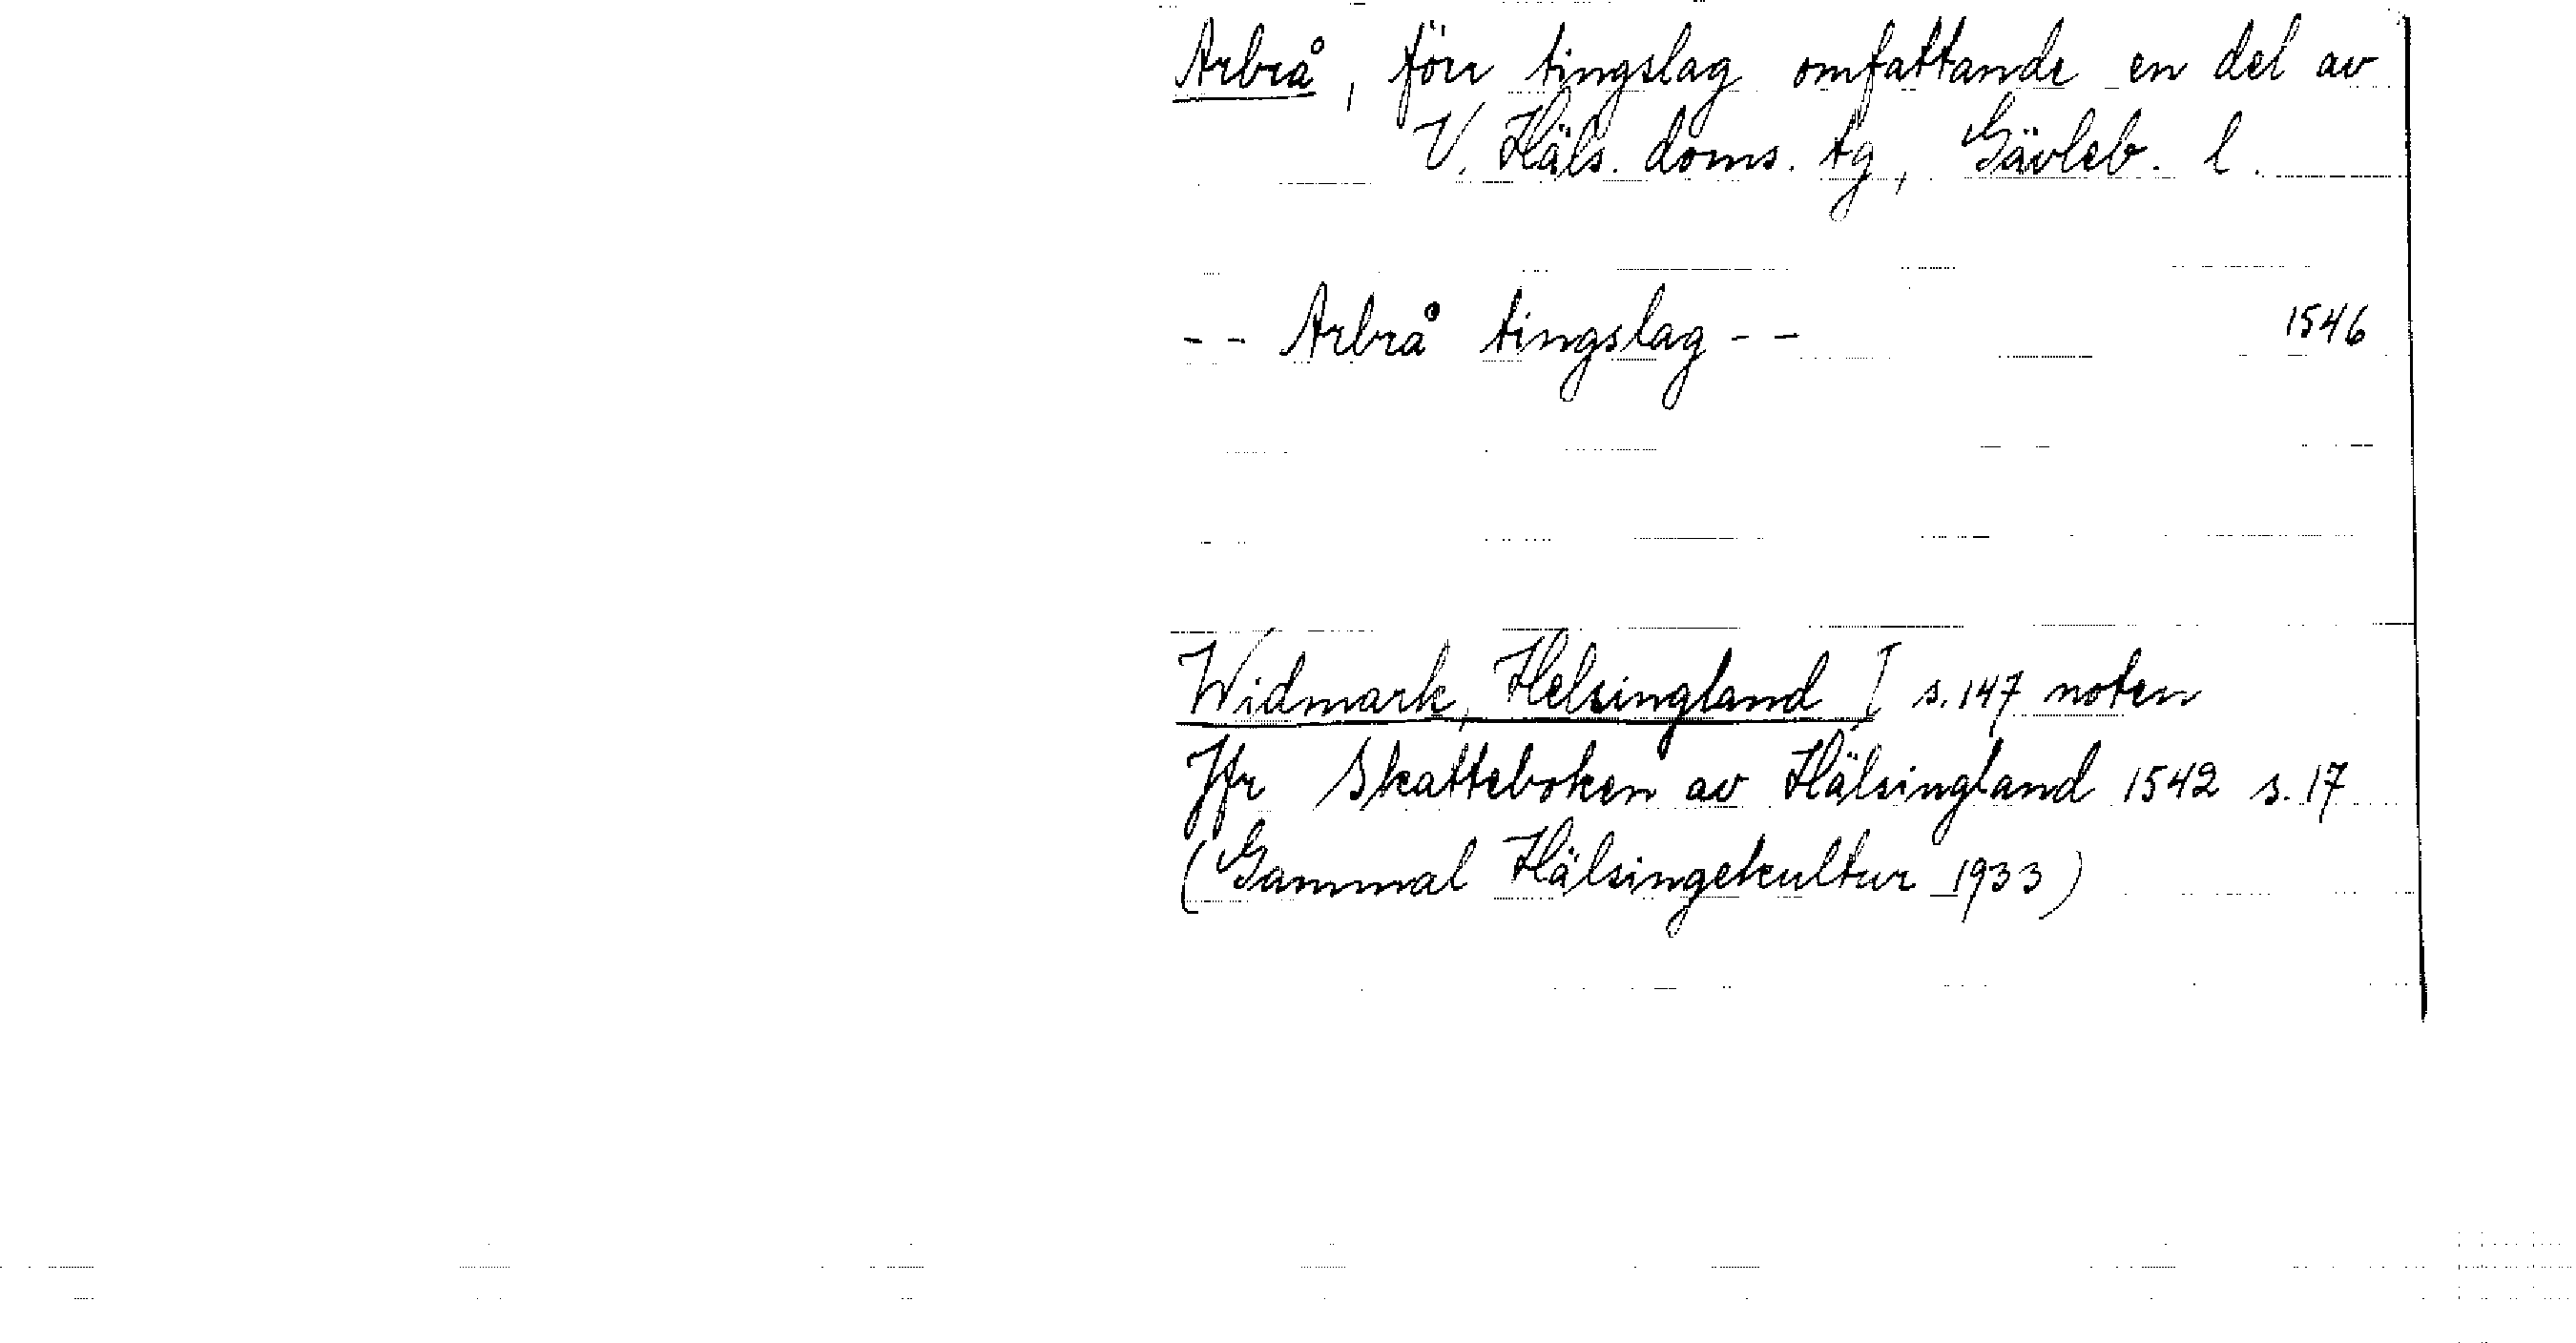 Arbrå, förr tingslag omfattande en del av
V. Häls. doms. tg, Gävleb. l.
-- Arbrå tingslag -- 1546
Widmark, Helsingland I s. 147 noten
Jfr Skatteboken av Hälsingland 1542 s. 17
(Gammal Hälsingekultur 1933)